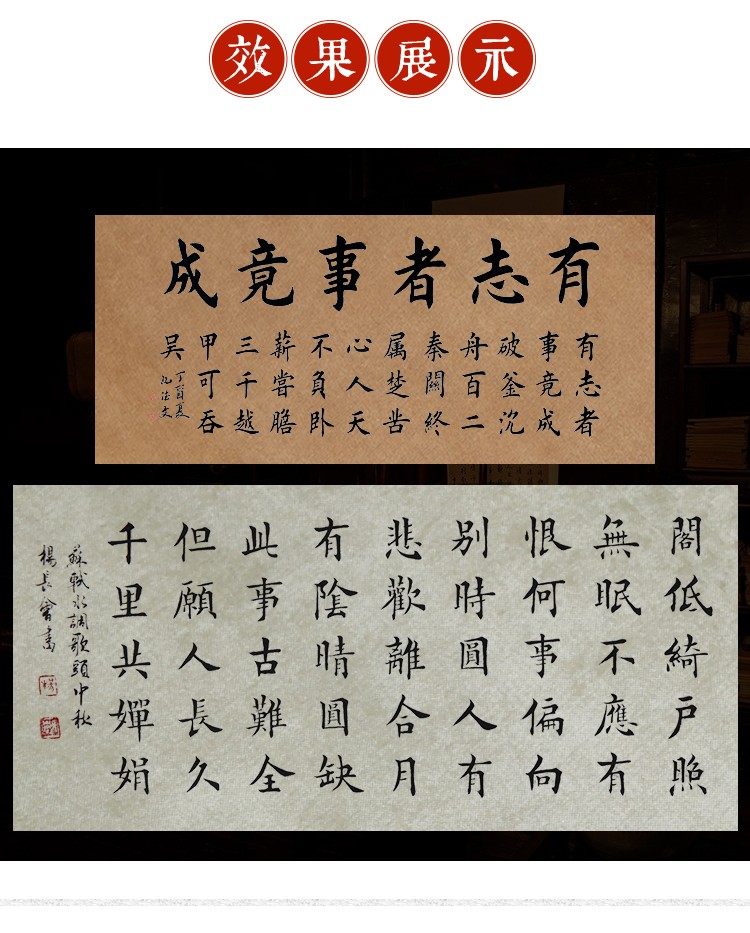 效果展示
有志者事竟成
有志者
事竟成
破釜沉
舟百二
秦關終
属楚苦
心人天
不負卧
薪嘗膽
三千越
甲可吞
吴
丁酉夏
閣低綺戶照
無眠不應有
恨何事偏向
别時圓人有
悲歡離合月
有陰晴圓缺
此事古難全
但願人長久
千里共嬋娟
蘇軾水調歌頭中秋
楊長書